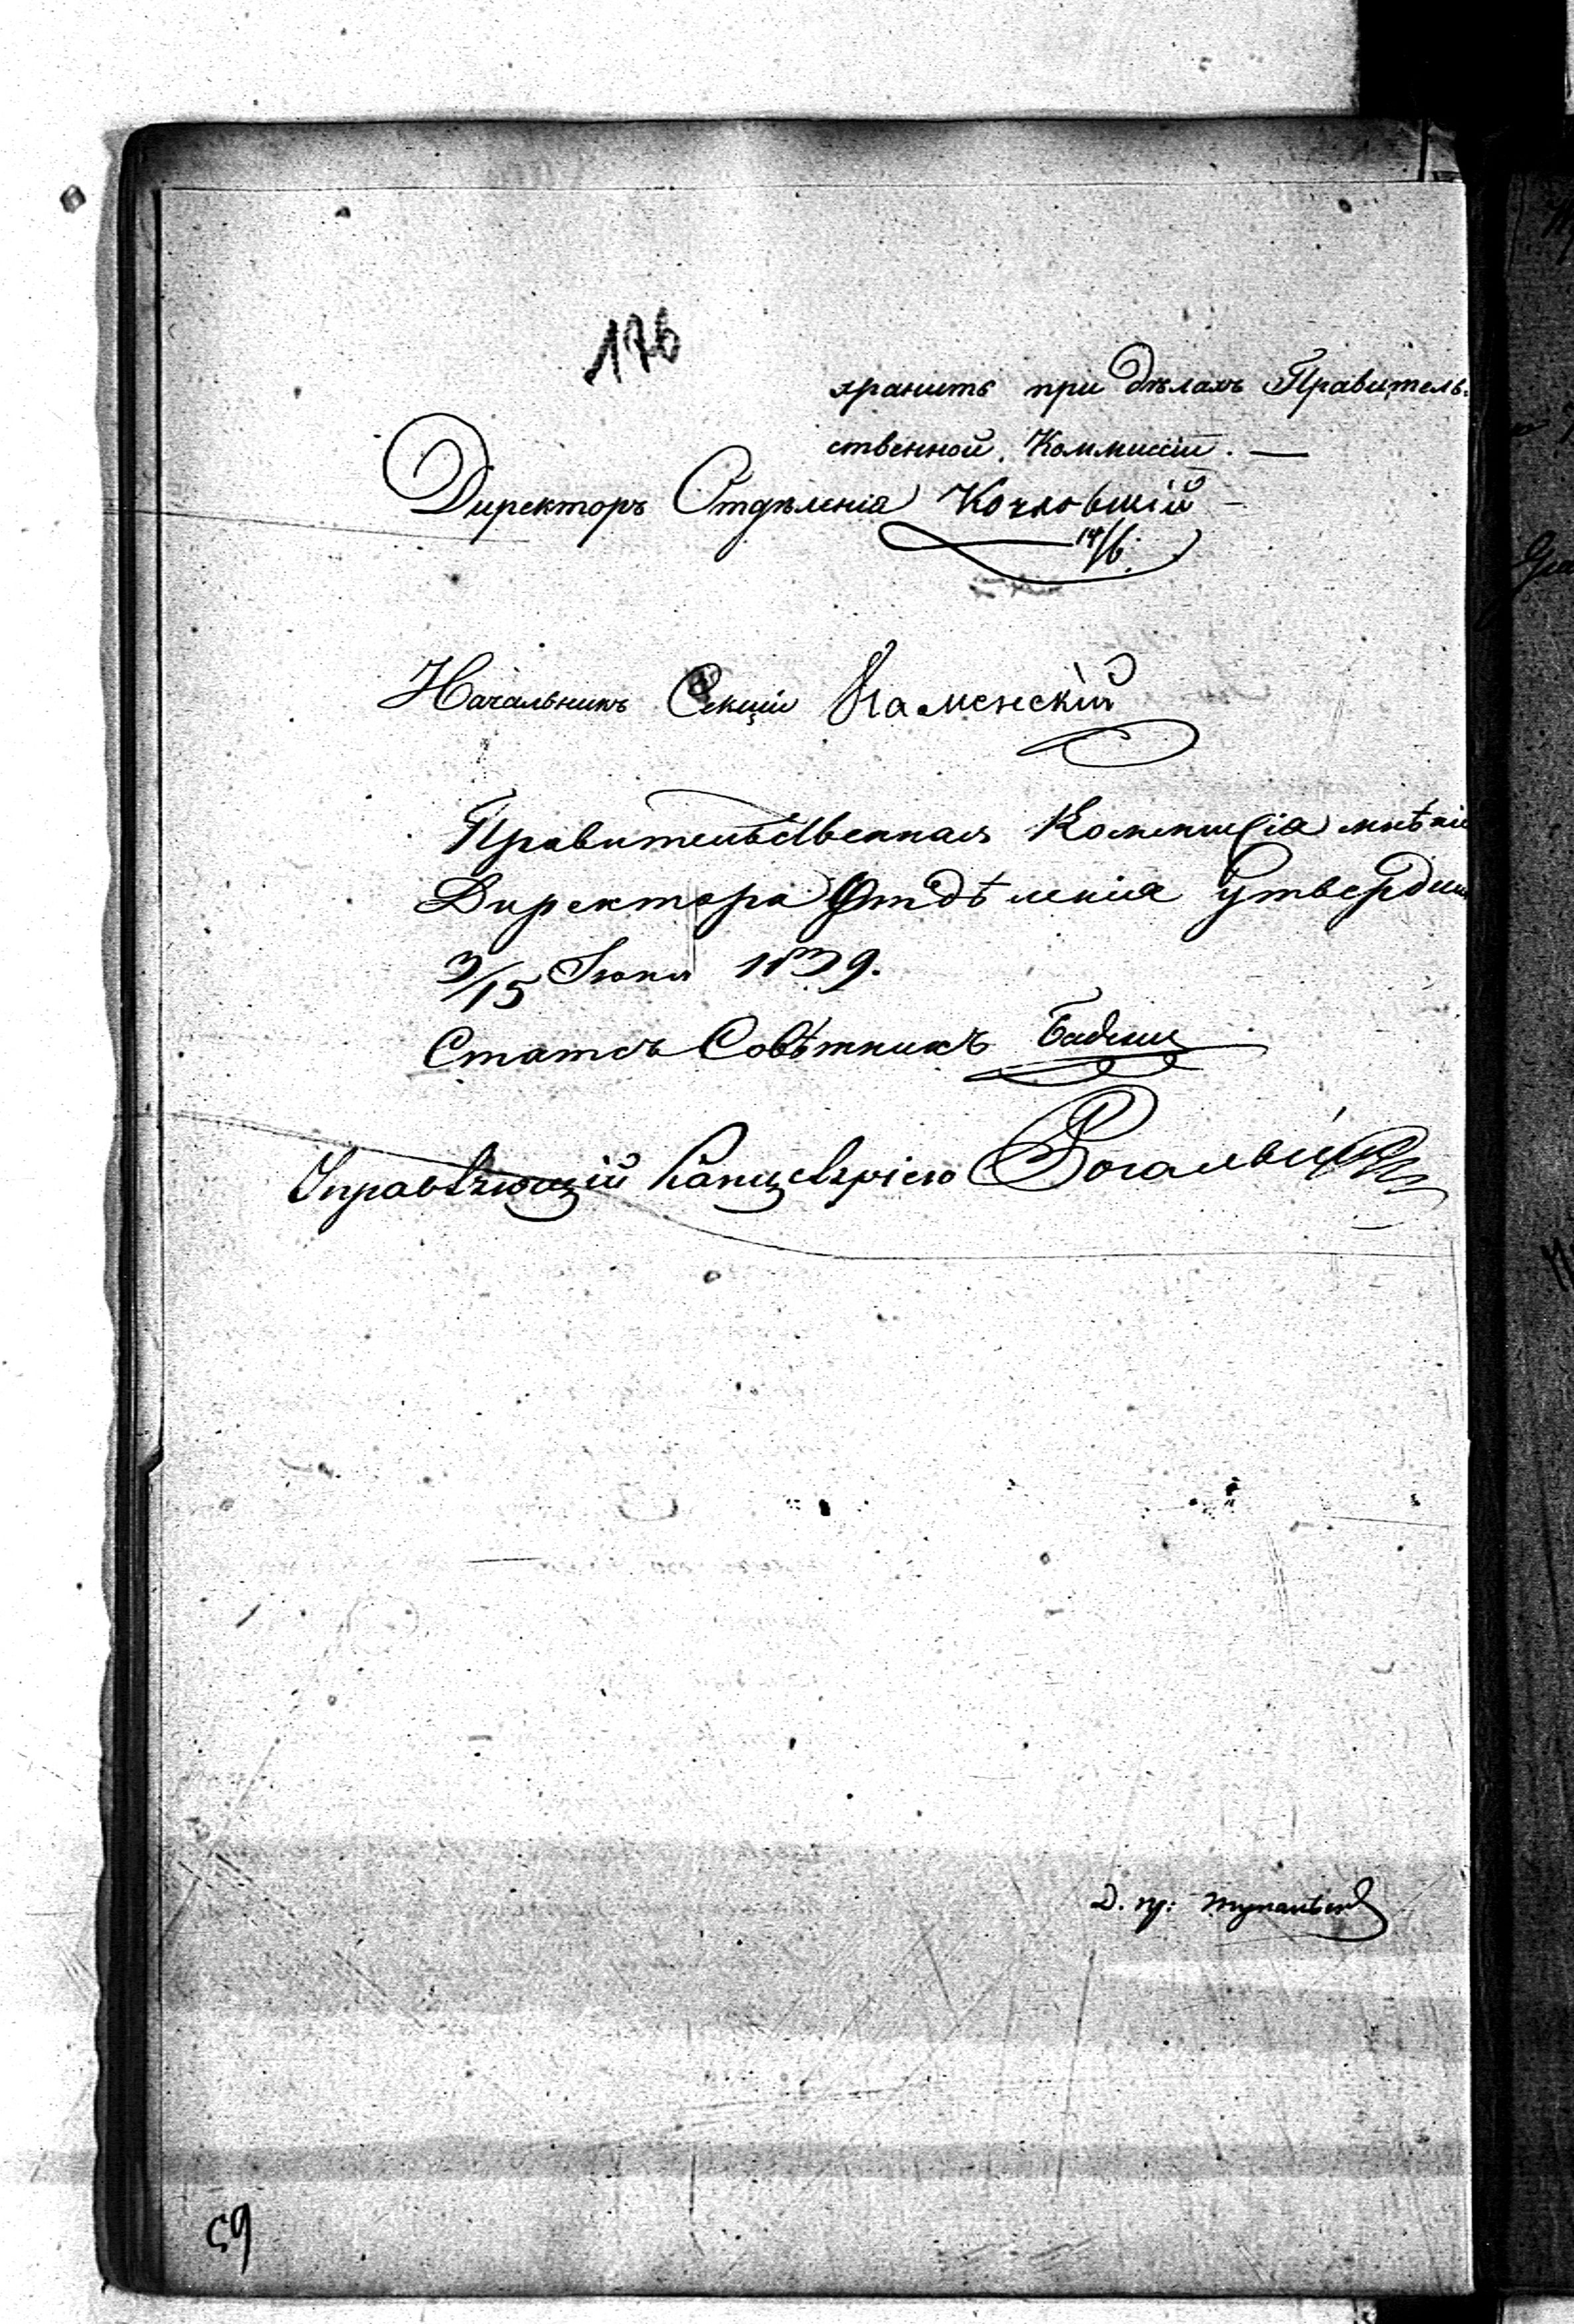 176
хранить при дѣлахъ Правитель-
ственной Коммиссіи. —
Директоръ Отдѣленія
14/6.
Начальникъ Секціи Каменскій
Правительственная Коммисія мнѣніе
Директора Отдѣленія утвердила
3/15 Іюня 1839.
Статсъ Совѣтникъ
Управляющій Канцеляріею
Д. пр:
59